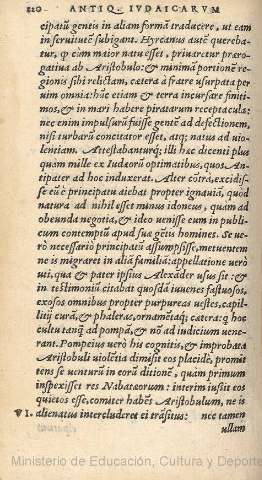 220 ANTIQ. IVDAICARVM
cipatũ gentis in aliam formã traducere, ut eam
in seruitutẽ subigant. Hyrcanus autẽ querebatur,
ꝙ cùm maior natu esset, priuaretur prærogatiua
ab Aristobulo: & minimã portionẽ regionis
sibi relictam, cætera à fratre usurpata per
uim omnia: hũc etiam & terra incursare finitimos,
& in mari habere piratarum receptacula:
nec enim impulsurũ fuisse gentẽ ad defectionem,
nisi turbarũ concitator esset, atq; natus ad uiolentiam.
Attestabanturq; illi hæc dicenti plus
quàm mille ex Iudæorũ optimatibus, quos Antipater
ad hoc induxerat. Alter cõtrà, excidisse
eũ è principatu aiebat propter ignauiã, quòd
natura ad nihil esset minus idoneus, quàm ad
obeunda negotia, & ideo uenisse eum in publicum
contemptũ apud sua gẽtis homines. Se uerò
necessariò principatũ assumpsisse, metuentem
ne is migraret in aliã familiã: appellatione uerò
uti, qua & pater ipsius Alexãder usus sit: &
in testimoniũ citabat quosdã iuuenes fastuosos,
exosos omnibus propter purpureas uestes, capillitij
curã, & phaleras, ornamẽtaq; cætera: q hoc
cultu tanq̃ ad pompã, & nõ ad iudicium uenerant.
Pompeius uerò his cognitis, & improbata
Aristobuli uiolẽtia dimisit eos placidè, promittens
se uenturũ in eorũ ditionẽ, quam primum
inspexisset res Nabatæorum: interim iussit eos
quietos esse, comiter habẽs Aristobulum, ne is
VI. alienatus intercluderet ei trãsitus: nec tamen
ullam
Ministerio de Educación, Cultura y Deporte